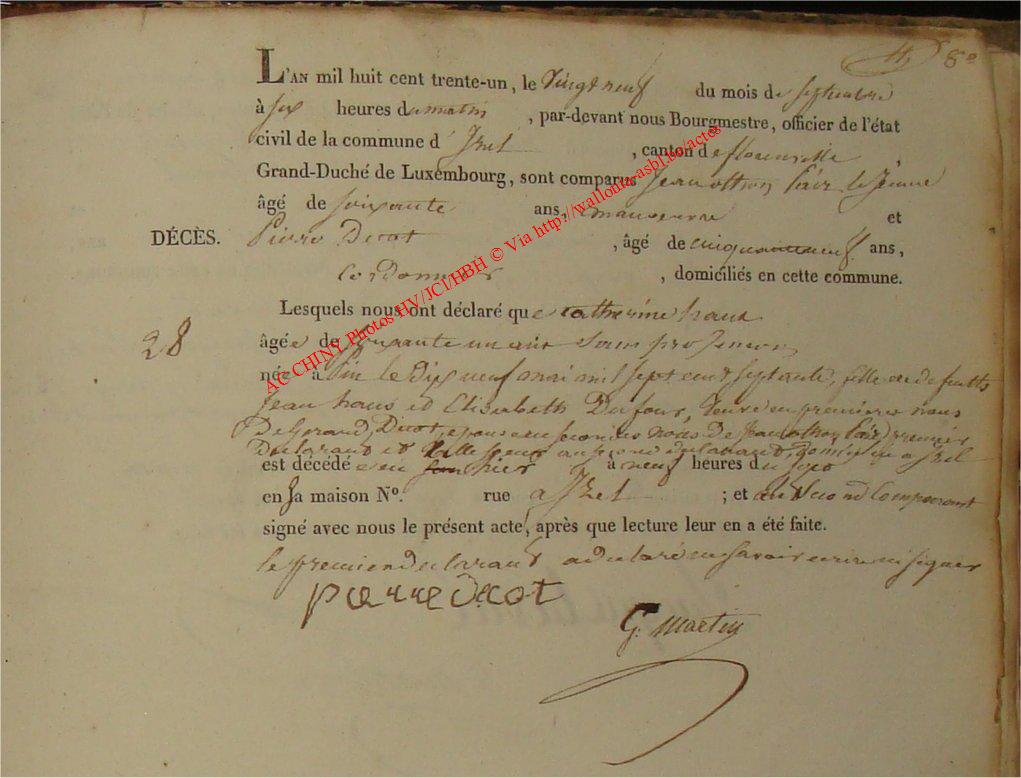 8°
L'AN mil huit cent trente-un, le vingt neuf du mois de septembre
à six heures du matin, par-devant nous Bourgmestre, officier de l'état
civil de la commune d' Izel, canton de florenville,
Grand-Duché de Luxembourg, sont comparus Jean othon le Jeune
âgé de soixante ans, manoeuvre et
DÉCÈS. Pierre Decot, âgé de cinquante neuf ans,
cordonnier, domiciliés en cette commune.
Lesquels nous ont déclaré que catherine haus
28
âgée de soixante un ans sans profession
née à Pin le dix neuf mai mil sept cent septante, fille de defunts
Jean haus et Elisabeth Dufour, veuve en premieres noces
De Gerard Decot, epouse en secondes noces de Jean othon premier
Declarant et belle soeur au second declarant, domiciliée a Izel
est décédée hier à neuf heures du soir
en sa maison N°. rue a Izel ; et le second Comparant
signé avec nous le présent acte, après que lecture leur en a été faite.
le premier declarant a declaré ne savoir ecrire ni signer
pierre Decot
G. Martin
AC CHINY Photos HV/JCI/HBH © Via http://wallonia-asbl.be/actes